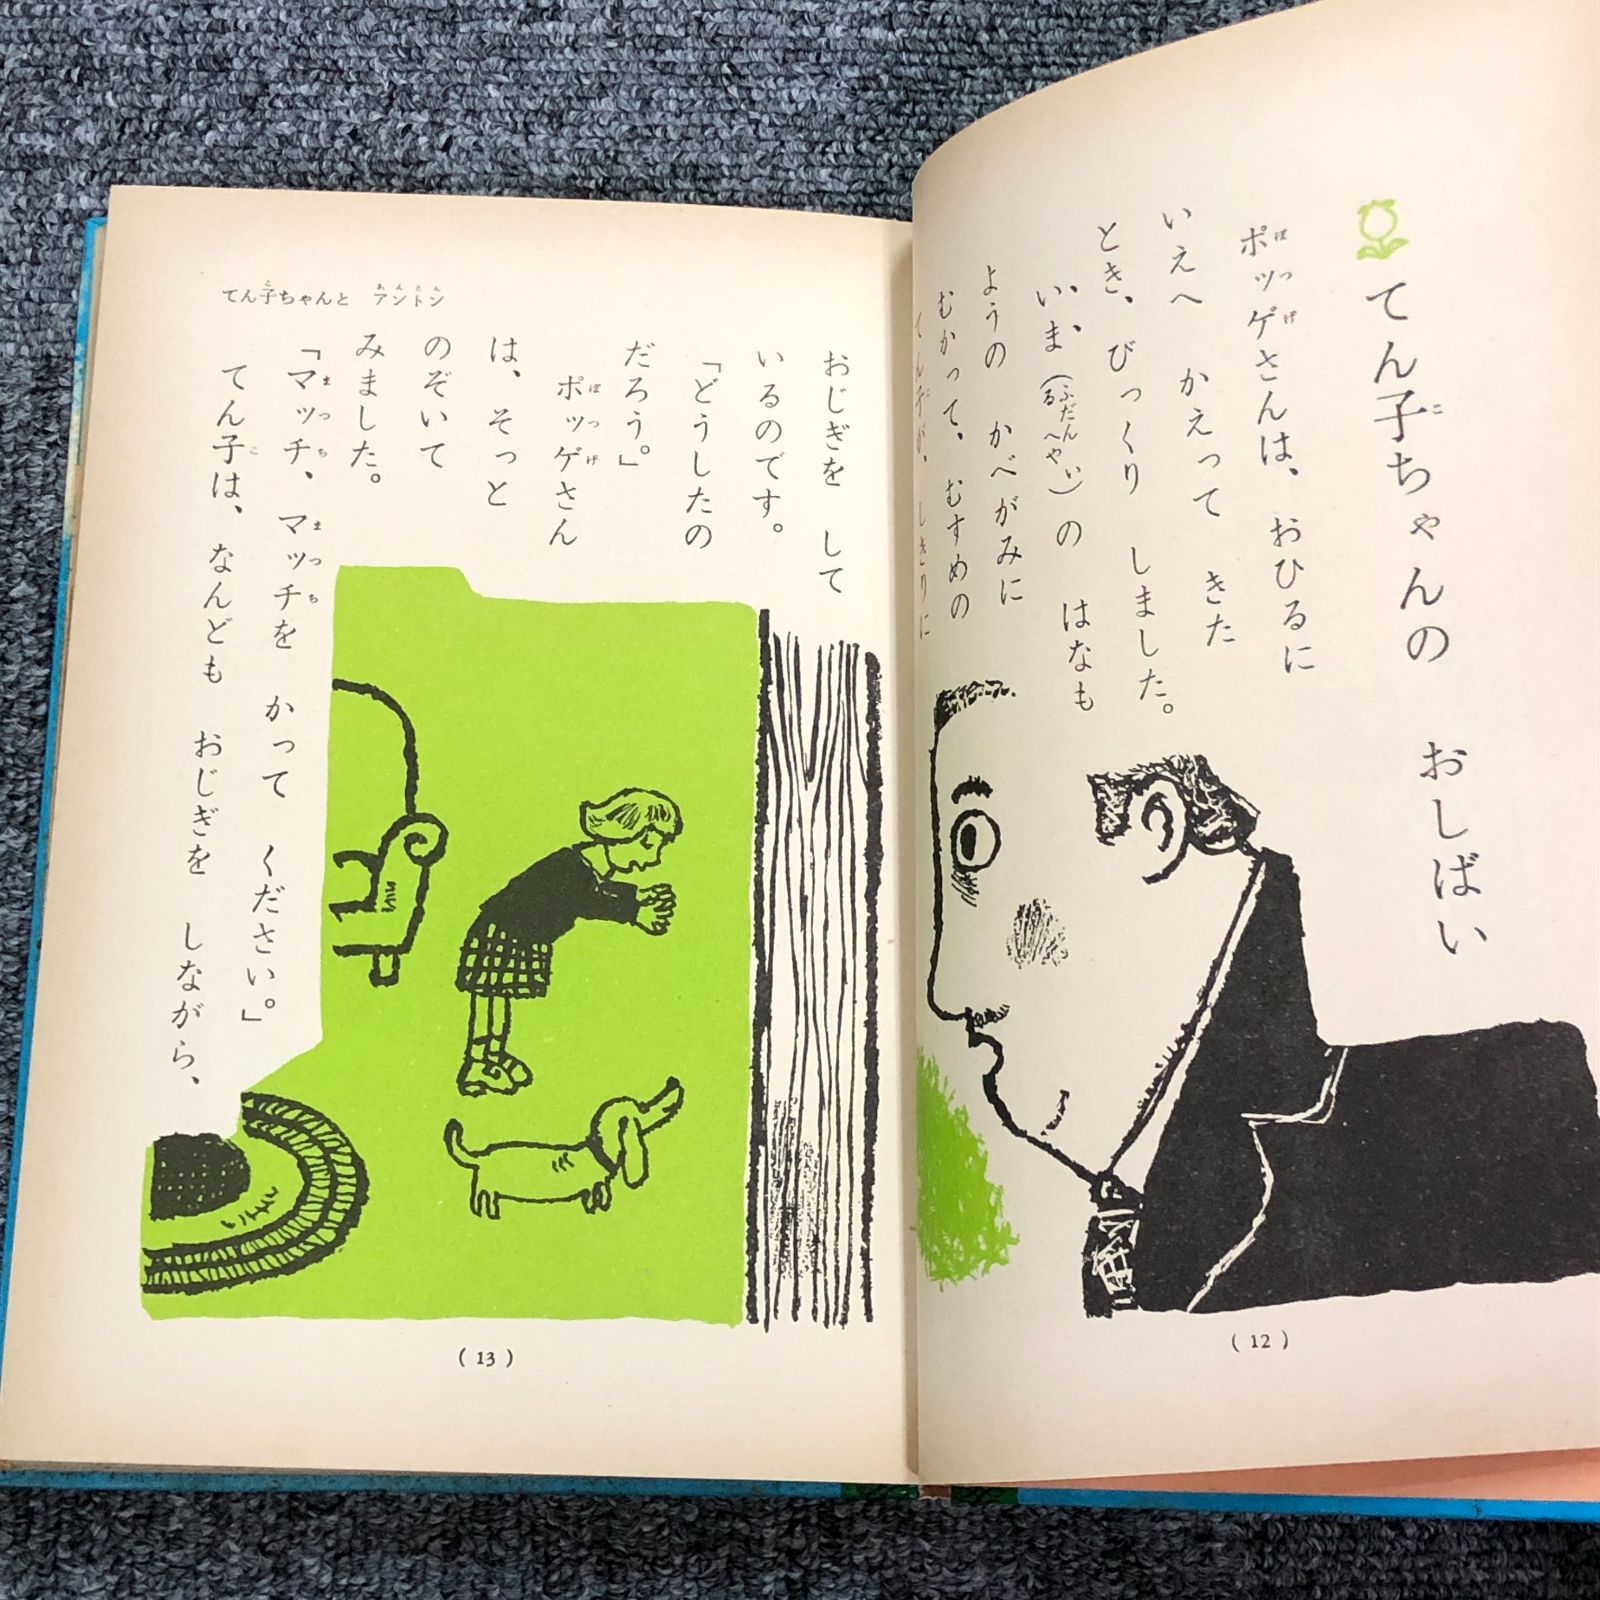 てん子ちゃんの おしばい
ポッゲさんは、おひるに
いえへ かえって きた
とき、びっくり しました。
いま（ふだんいるへや）の はなも
ようの かべがみに
むかって、むすめの
てん子が、しきりに
(12)
てん子ちゃんと アントン
おじぎを して
いるのです。
「どうしたの
だろう。」
ポッゲさん
は、そっと
のぞいて
みました。
「マッチ、マッチを かって ください。」
てん子は、なんども おじぎを しながら、
(13)